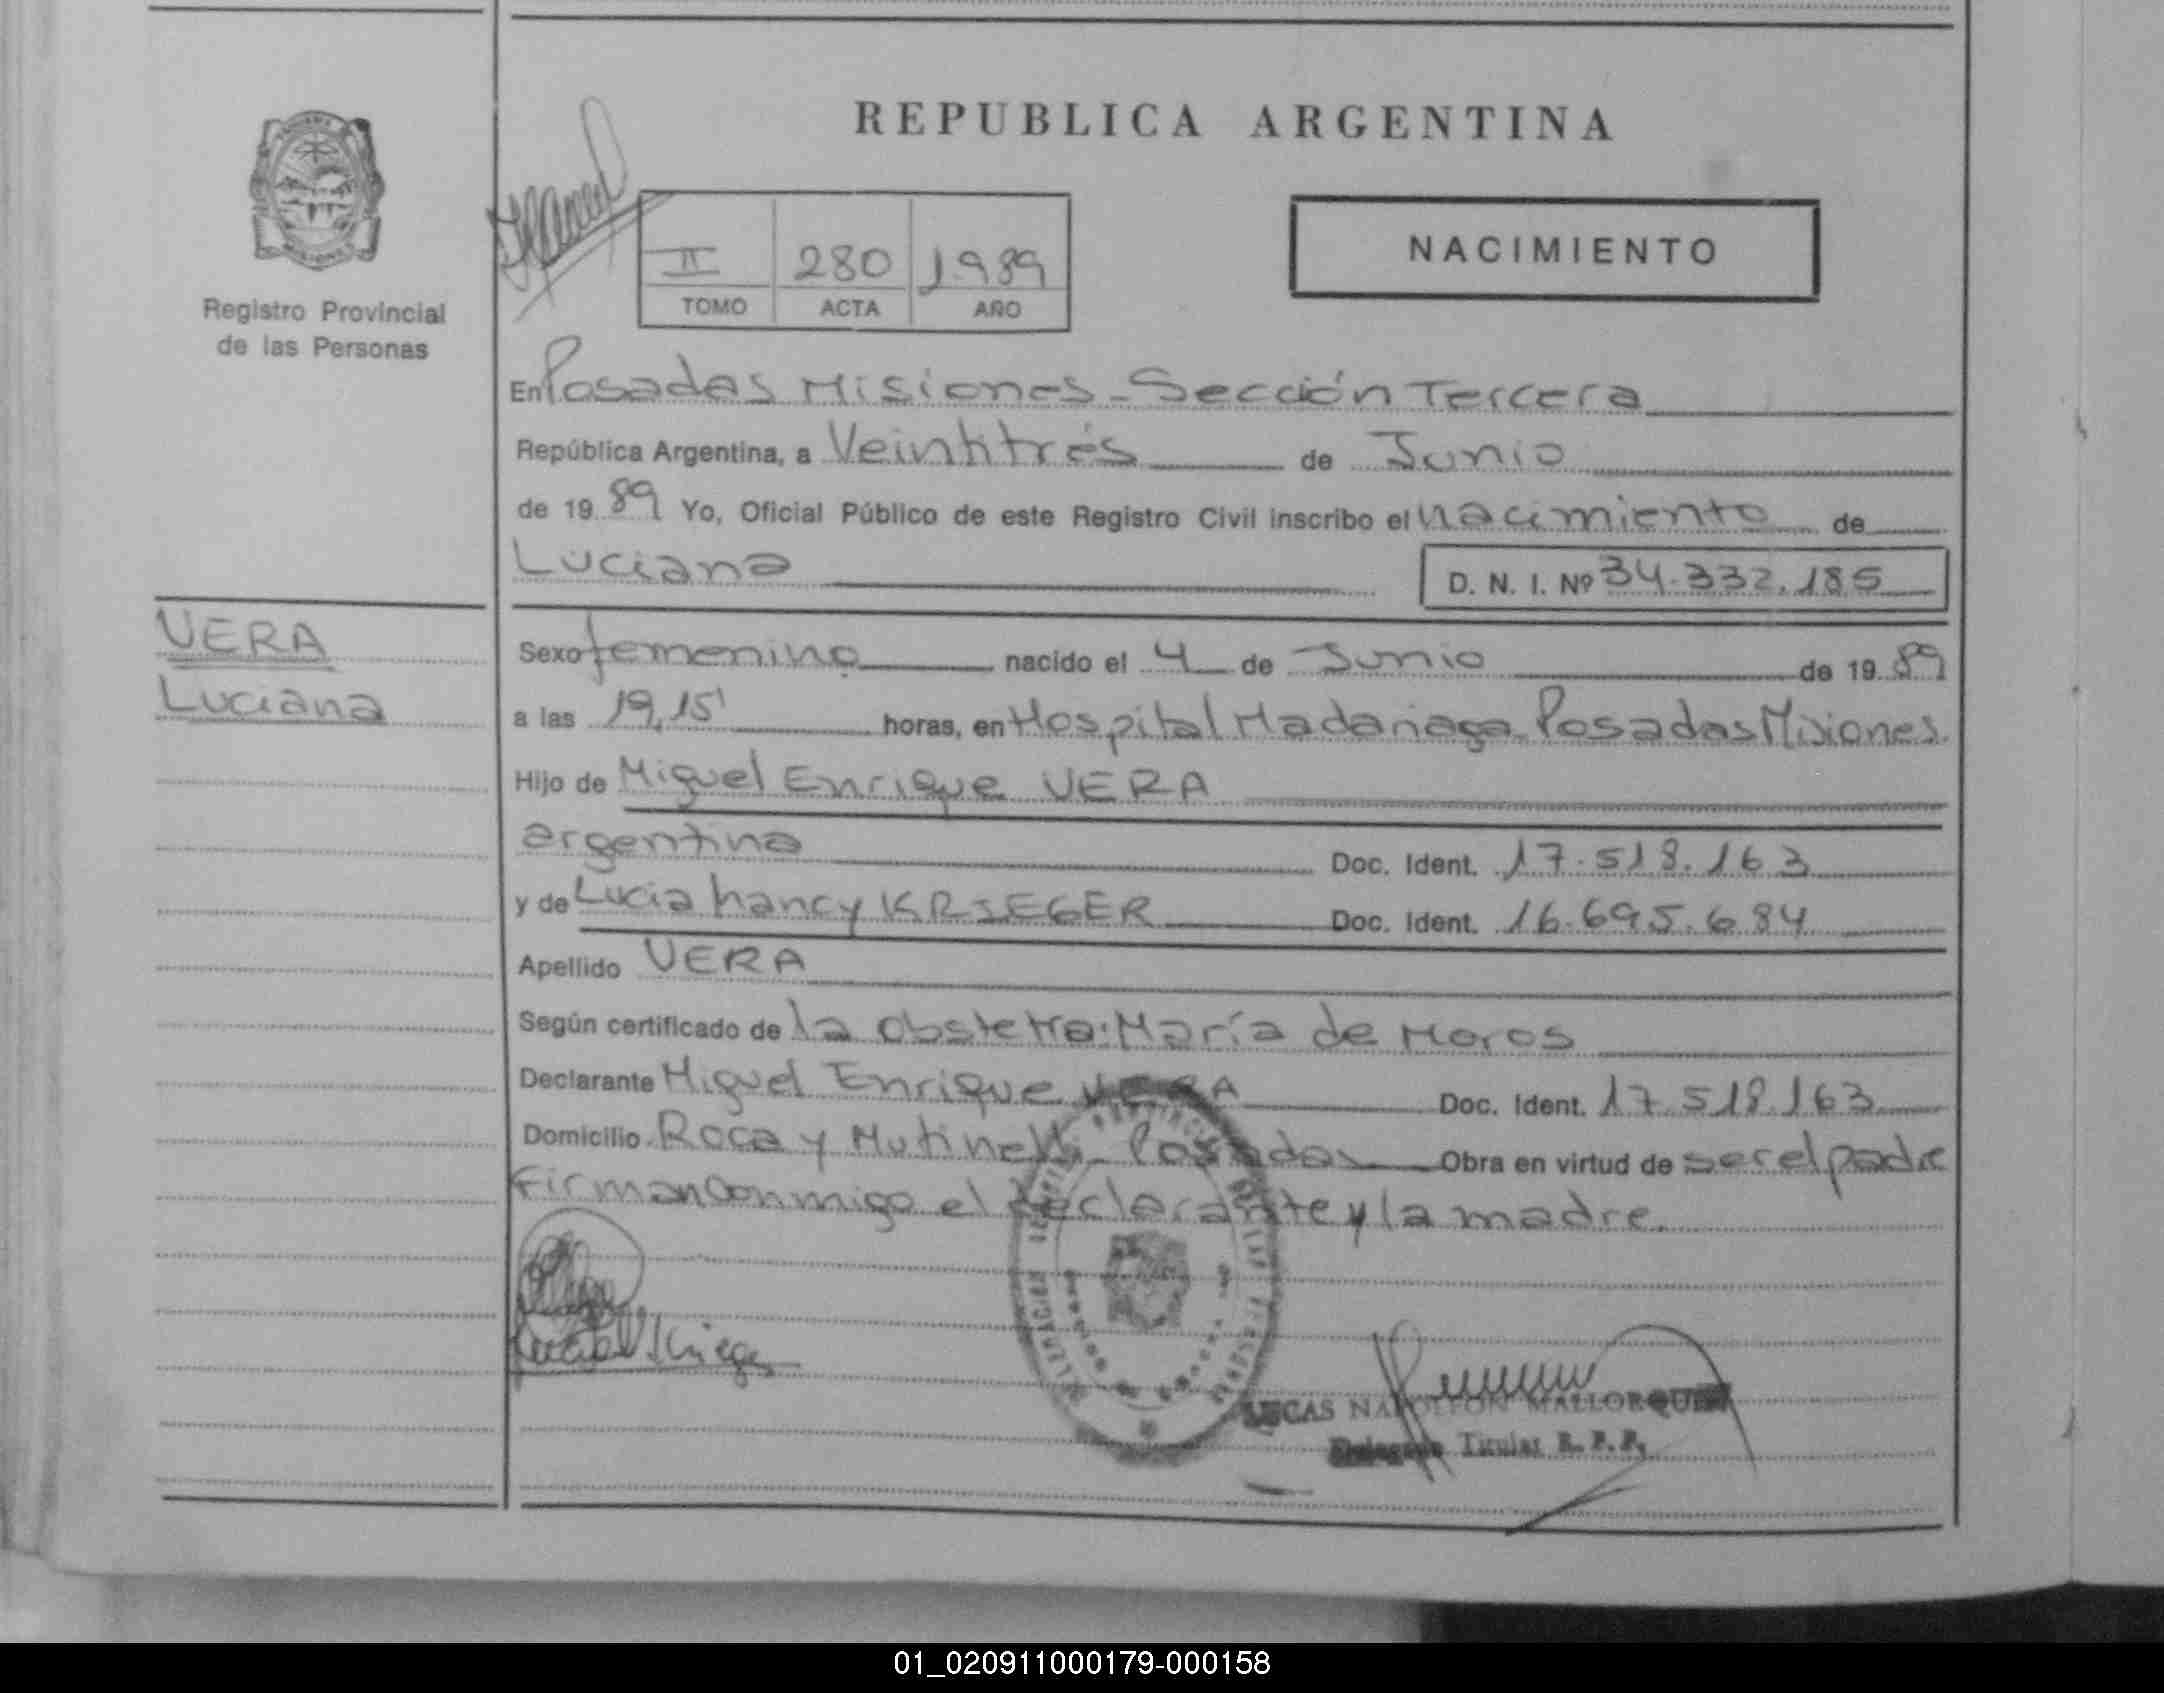 REPUBLICA ARGENTINA
Registro Provincial
de las Personas
II 280 1989
TOMO ACTA AÑO
NACIMIENTO
En Posadas Misiones - Sección Tercera
República Argentina, a Veintitrés de Junio
de 19 89 Yo, Oficial Público de este Registro Civil inscribo el nacimiento de
Luciana D. N. I. Nº 34.332.185
VERA
Luciana
Sexo femenino nacido el 4 de Junio de 19 89
a las 19,15' horas, en Hospital Madariaga Posadas Misiones.
Hijo de Miguel Enrique VERA
argentina Doc. Ident. 17.518.163
y de Lucia nancy KRIEGER Doc. Ident. 16.695.684
Apellido VERA
Según certificado de la obstetra: María de Moros
Declarante Miguel Enrique VERA Doc. Ident. 17.518.163
Domicilio Roca y Mutinelli - Posadas Obra en virtud de ser el padre
Firman conmigo el declarante y la madre.
LUCAS NAPOLEON MALLORQUIN
Titular R. P. P.
01_020911000179-000158